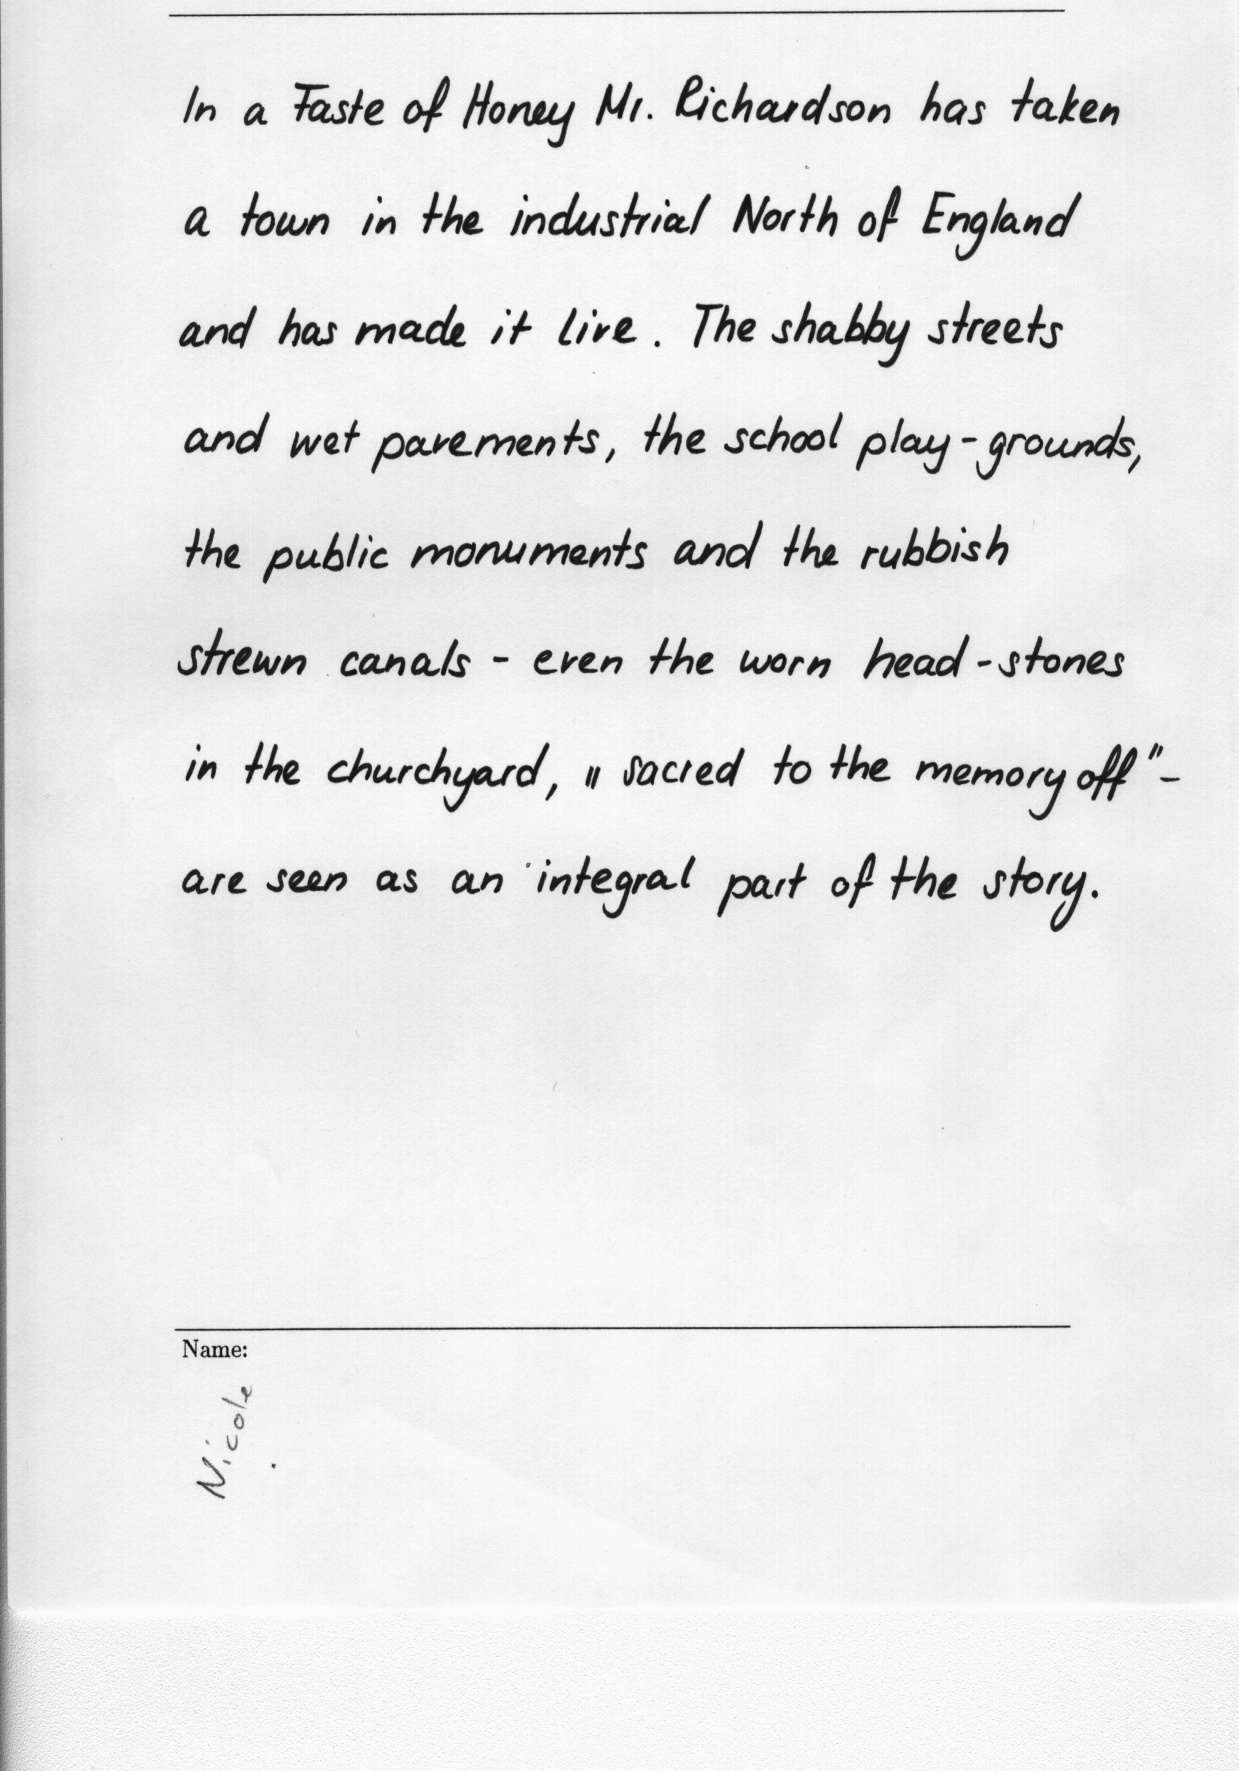 In a Taste of Honey Mr. Richardson has taken
a town in the industrial North of England
and has made it live. The shabby streets
and wet pavements, the school play-grounds,
the public monuments and the rubbish
strewn canals - even the worn head-stones
in the churchyard, „ sacred to the memory off" -
are seen as an integral part of the story.
Name:
Nicole